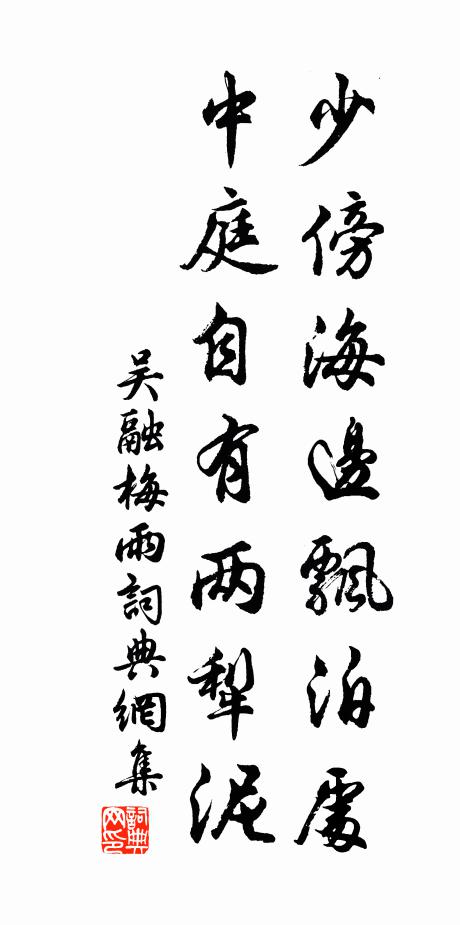 少傍海邊飄泊處
中庭自有两犁泥
吴融梅雨詞典網集
詞典网印